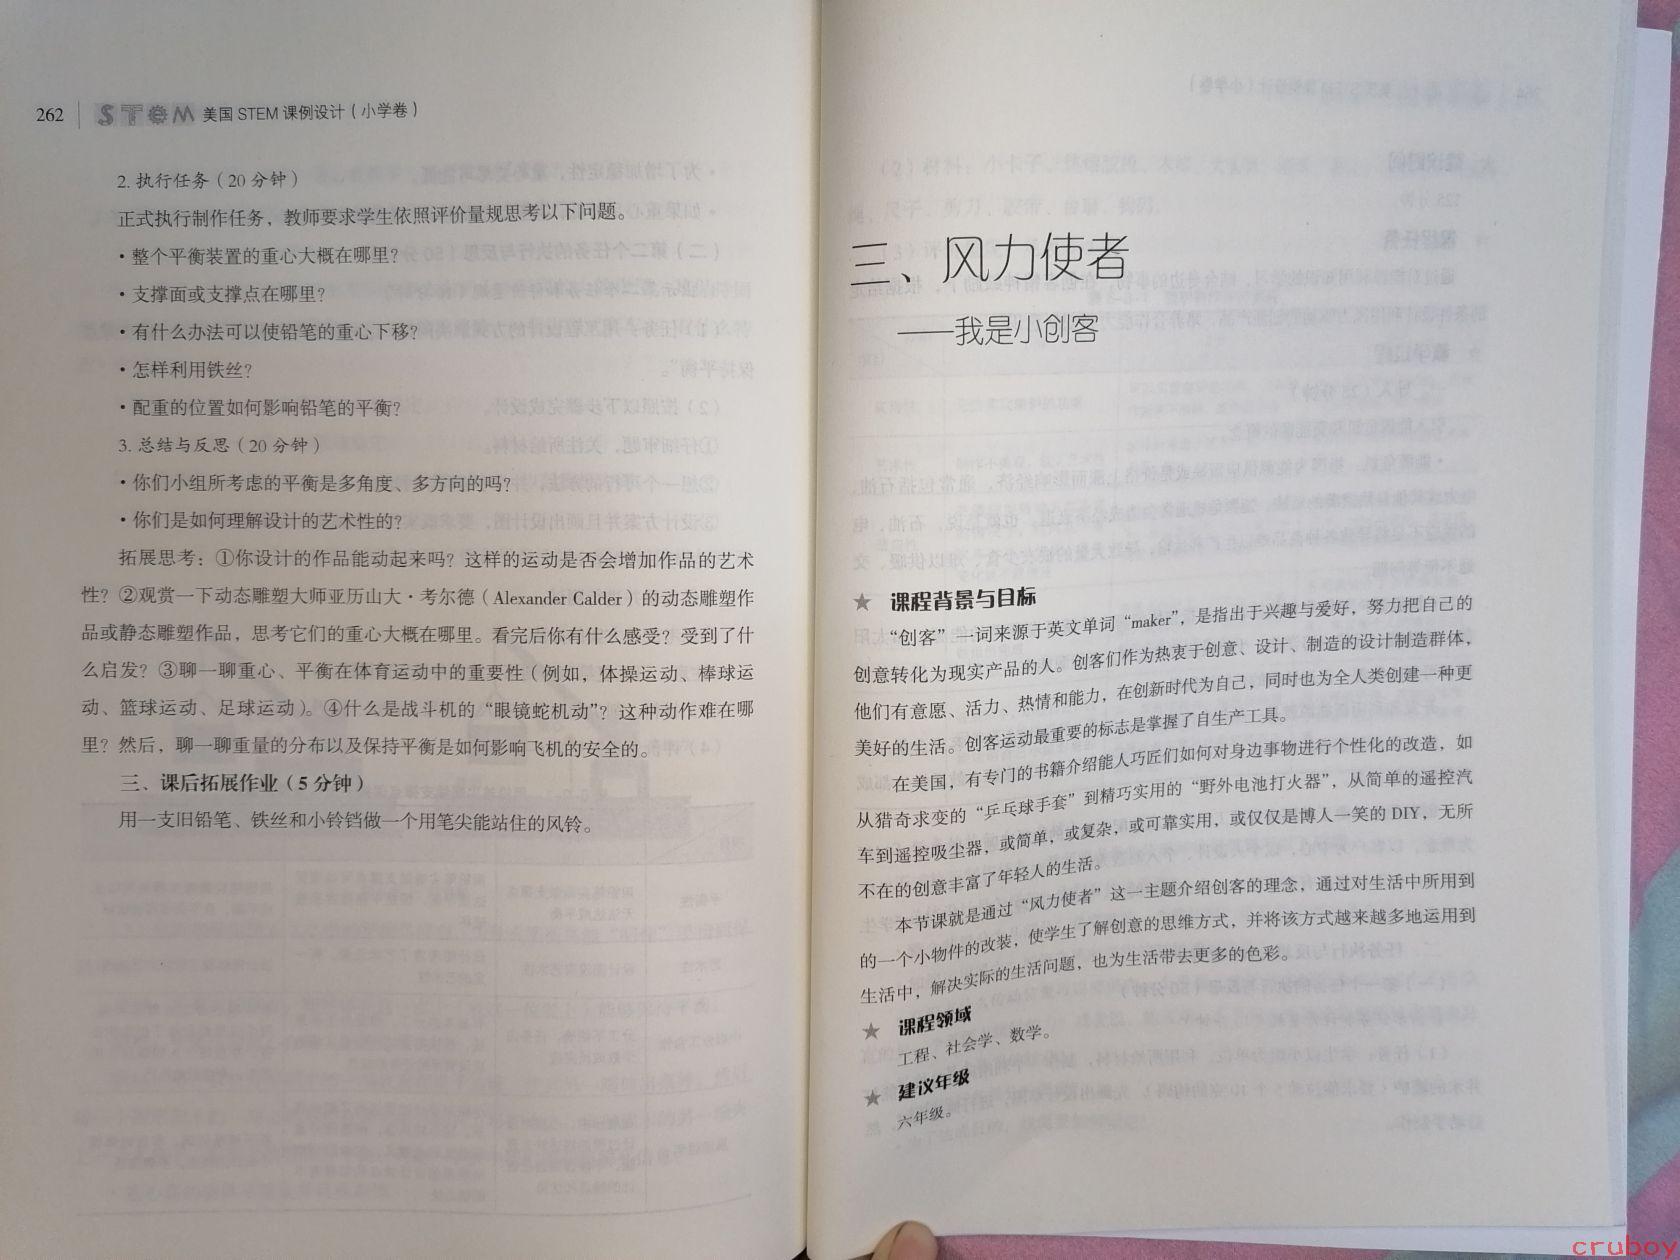 262 STEM 美国 STEM 课例设计（小学卷）
2. 执行任务（20 分钟）
正式执行制作任务，教师要求学生依照评价量规思考以下问题。
·整个平衡装置的重心大概在哪里？
·支撑面或支撑点在哪里？
·有什么办法可以使铅笔的重心下移？
·怎样利用铁丝？
·配重的位置如何影响铅笔的平衡？
3. 总结与反思（20 分钟）
·你们小组所考虑的平衡是多角度、多方向的吗？
·你们是如何理解设计的艺术性的？
拓展思考：①你设计的作品能动起来吗？这样的运动是否会增加作品的艺术
性？②观赏一下动态雕塑大师亚历山大·考尔德（Alexander Calder）的动态雕塑作
品或静态雕塑作品，思考它们的重心大概在哪里。看完后你有什么感受？受到了什
么启发？③聊一聊重心、平衡在体育运动中的重要性（例如，体操运动、棒球运
动、篮球运动、足球运动）。④什么是战斗机的“眼镜蛇机动”？这种动作难在哪
里？然后，聊一聊重量的分布以及保持平衡是如何影响飞机的安全的。
三、课后拓展作业（5 分钟）
用一支旧铅笔、铁丝和小铃铛做一个用笔尖能站住的风铃。
三、风力使者
——我是小创客
★ 课程背景与目标
“创客”一词来源于英文单词“maker”，是指出于兴趣与爱好，努力把自己的
创意转化为现实产品的人。创客们作为热衷于创意、设计、制造的设计制造群体，
他们有意愿、活力、热情和能力，在创新时代为自己，同时也为全人类创建一种更
美好的生活。创客运动最重要的标志是掌握了自生产工具。
在美国，有专门的书籍介绍能人巧匠们如何对身边事物进行个性化的改造，如
从猎奇求变的“乒乓球手套”到精巧实用的“野外电池打火器”，从简单的遥控汽
车到遥控吸尘器，或简单，或复杂，或可靠实用，或仅仅是博人一笑的 DIY，无所
不在的创意丰富了年轻人的生活。
本节课就是通过“风力使者”这一主题介绍创客的理念，通过对生活中所用到
的一个小物件的改装，使学生了解创意的思维方式，并将该方式越来越多地运用到
生活中，解决实际的生活问题，也为生活带去更多的色彩。
★ 课程领域
工程、社会学、数学。
★ 建议年级
六年级。
cruboy